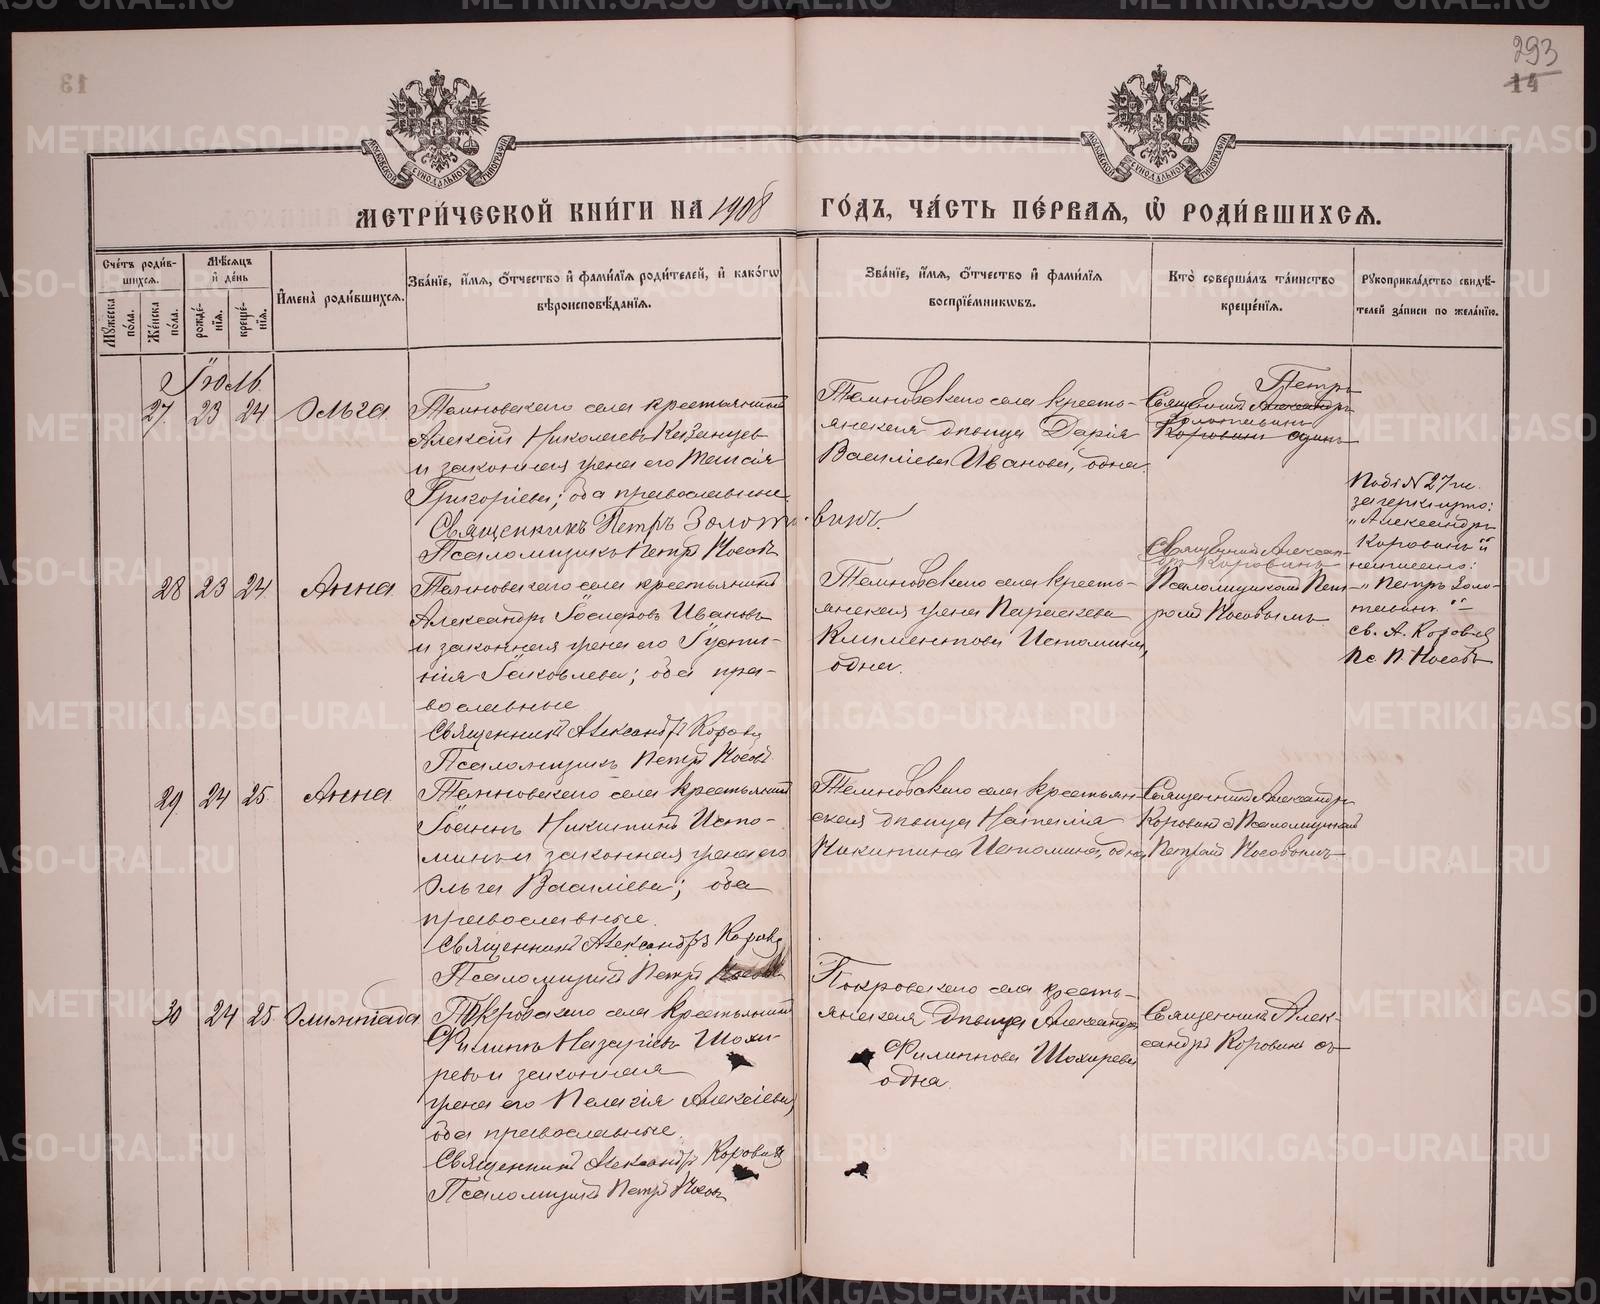 293
14
МЕТРИ́ЧЕСКОЙ КНИ́ГИ НА 1908 ГО́ДЪ, ЧА́СТЬ ПЕ́РВАЯ, Ѡ҆ РОДИ́ВШИХСЯ.
Сче́тъ роди́вшихся.
Мꙋ́жеска по́ла.
Же́нска по́ла.
Мѣ́сяцъ и҆ де́нь
рожде́нїя.
креще́нїя.
И҆мена̀ роди́вшихся.
Зва́нїе, и҆́мя, о҆́тчество и҆ фами́лїя роди́телей, и҆ како́гѡ
вѣроисповѣ́данїя.
Зва́нїе, и҆́мя, о҆́тчество и҆ фами́лїя
воспрїе́мникѡвъ.
Кто̀ соверша́лъ та́инство
креще́нїя.
Рꙋкоприкла́дство свидѣ́-
телей за́писи по жела́нїю.
Іюль.
27. 23 24 Ольга
Темновского села крестьянинъ
Алексѣй Николаевъ Казанцевъ
и законная жена его Таисія
Григоріева; оба православные
Священникъ Петръ Золотавинъ.
Псаломщикъ Петръ Носовъ
Темновского села кресть-
янская дѣвица Дарія
Василіева Иванова, одна.
Петръ
Священникъ Александръ
Золотавинъ
Коровинъ одинъ
Подъ № 27 м.
зачеркнуто:
„Александръ
Коровинъ" и
написано:
„Петръ Золо-
тавинъ."
св. А. Коровинъ
Пс. П. Носовъ
28 23 24 Анна
Темновского села крестьянинъ
Александръ Іосифовъ Ивановъ
и законная жена его Іусти-
нія Іаковлева; оба пра-
вославные
Священникъ Александръ Коровинъ
Псаломщикъ Петръ Носовъ
Темновского села кресть-
янская жена Параскева
Климентова Истомина,
одна.
Священникъ Алексан-
дръ Коровинъ
Псаломщикомъ Пет-
ромъ Носовымъ
29. 24 25. Анна
Темновского села крестьянинъ
Іоаннъ Никитинъ Исто-
минъ и законная жена его
Ольга Василіева; оба
православные.
Священникъ Александръ Коровинъ
Псаломщикъ Петръ Носовъ
Темновского села крестьян-
ская дѣвица Наталія
Никитина Истомина, одна
Священникъ Александръ
Коровинъ с Псаломщикомъ
Петромъ Носовымъ
30 24 25. Олимпіада
Покровского села крестьянинъ
Филиппъ Назаріевъ Шохи-
ревъ и законная
жена его Пелагія Алексіева,
оба православные.
Священникъ Александръ Коровинъ
Псаломщикъ Петръ Носовъ
Покровского села кресть-
янская дѣвица Александра
Филиппова Шохирева
одна.
Священникъ Алек-
сандръ Коровинъ съ
METRIKI.GASO-URAL.RU